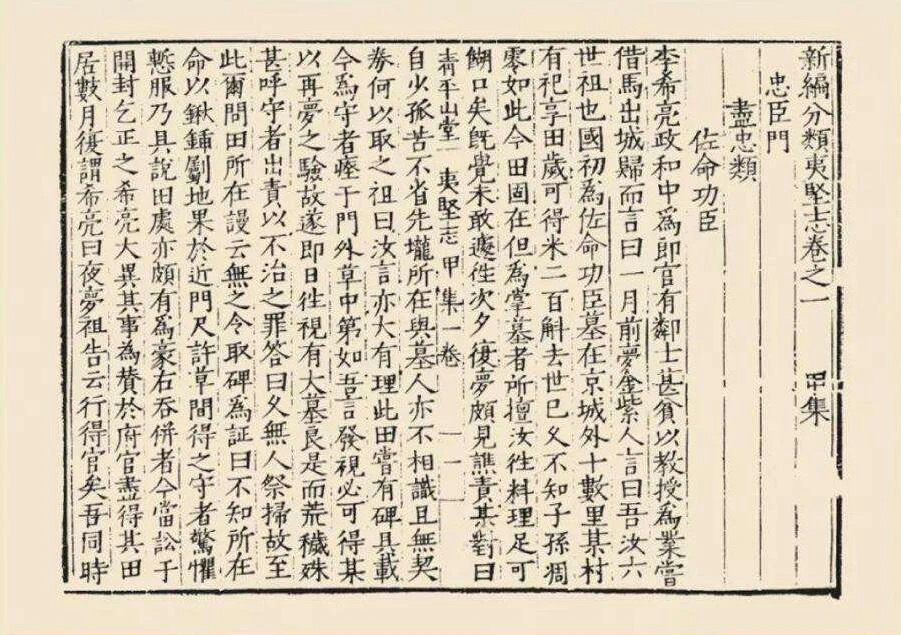 新編分類夷堅志卷之一 甲集
忠臣門
盡忠類
佐命功臣
李希亮政和中爲郎官有鄰士甚貧以教授為業嘗
借馬出城歸而言曰一月前夢金紫人言曰吾汝六
世祖也國初為佐命功臣墓在京城外十數里某村
有祀享田歲可得米二百斛去世已乆不知子孫凋
零如此今田固在但為掌墓者所擅汝徃料理足可
餬口矣旣覺未敢遽徃次夕復夢頗見譙責某對曰
清平山堂 夷堅志甲集一卷 一
自少孤苦不省先壠所在與墓人亦不相識且無契
劵何以取之祖曰汝言亦大有理此田嘗有碑具載
今爲守者瘞于門外草中第如吾言發視必可得某
以再夢之驗故遂即日徃視有大墓良是而荒穢殊
甚呼守者出責以不治之罪答曰乆無人祭掃故至
此爾問田所在謾云無之令取碑爲証曰不知所在
命以鍬鍤斸地果於近門尺許草間得之守者驚懼
慙服乃具說田處亦頗有爲豪右吞併者今當訟于
開封乞正之希亮大異其事為賛於府官盡得其田
居數月復謂希亮曰夜夢祖告云行得官矣吾同時